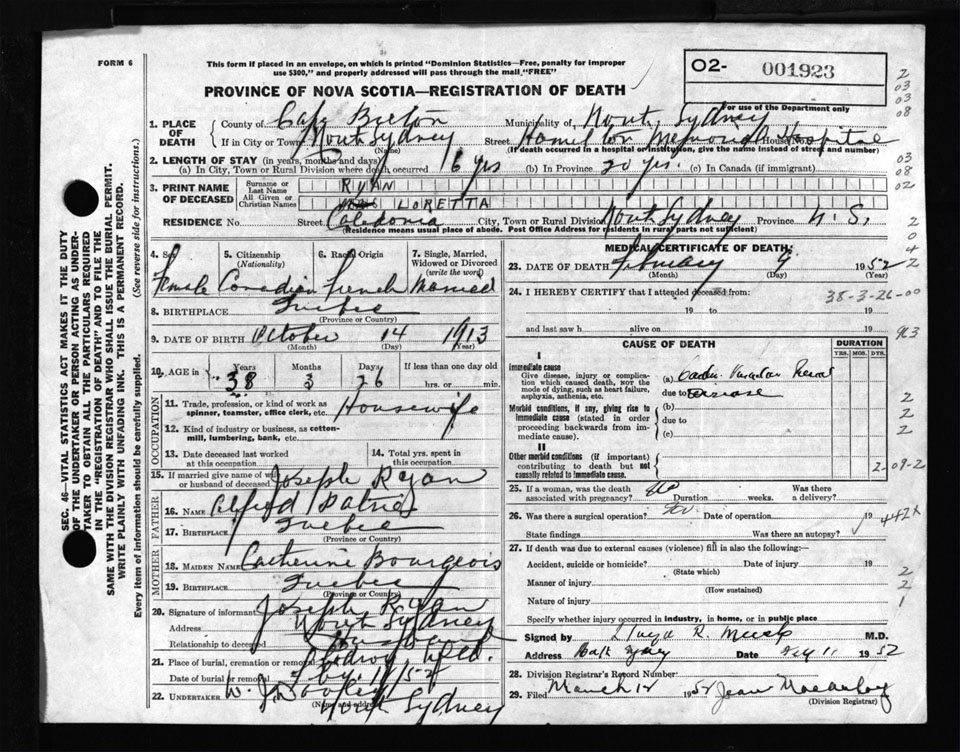 FORM 6
This form if placed in an envelope, on which is printed "Dominion Statistics—Free, penalty for improper
use $300," and properly addressed will pass through the mail "FREE"
PROVINCE OF NOVA SCOTIA—REGISTRATION OF DEATH
O2- 001923
For use of the Department only
1. PLACE OF DEATH County of Cape Breton Municipality of North Sydney
If in City or Town North Sydney (Name) Street Hamilton Memorial Hospital House No.
(If death occurred in a hospital or institution, give the name instead of street and number)
2. LENGTH OF STAY (in years, months and days)
(a) In City, Town or Rural Division where death occurred 16 yrs (b) In Province 20 yrs. (c) In Canada (if immigrant)
3. PRINT NAME OF DECEASED Surname or Last Name RYAN
All Given or Christian Names LORETTA
RESIDENCE No. Street Caledonia City, Town or Rural Division North Sydney Province N.S.
(Residence means usual place of abode. Post Office Address for residents in rural parts not sufficient)
4. Sex 5. Citizenship (Nationality) 6. Racial Origin 7. Single, Married, Widowed or Divorced (write the word)
Female Canadian French Married
8. BIRTHPLACE Quebec
(Province or Country)
9. DATE OF BIRTH October 14 1913
(Month) (Day) (Year)
10. AGE in Years Months Days If less than one day old
38 3 26 hrs. or min.
OCCUPATION
11. Trade, profession, or kind of work as spinner, teamster, office clerk, etc. Housewife
12. Kind of industry or business, as cotton-mill, lumbering, bank, etc.
13. Date deceased last worked at this occupation 14. Total yrs. spent in this occupation
15. If married give name of wife or husband of deceased Joseph Ryan
FATHER
16. NAME Alfred
17. BIRTHPLACE Quebec
(Province or Country)
MOTHER
18. MAIDEN NAME Catherine Bourgeois
19. BIRTHPLACE Quebec
(Province or Country)
20. Signature of informant Joseph Ryan
Address North Sydney
Relationship to deceased Husband
21. Place of burial, cremation or removal
Date of burial or removal Feby. 11/52
22. UNDERTAKER W. J. Dooley
(Name and address) North Sydney
MEDICAL CERTIFICATE OF DEATH
23. DATE OF DEATH February 9 1952
(Month) (Day) (Year)
24. I HEREBY CERTIFY that I attended deceased from:
38-3-26-00
19 to 19
and last saw h alive on 19
CAUSE OF DEATH DURATION
YRS. MOS. DYS.
I
Immediate cause
Give disease, injury or complication which caused death, NOT the mode of dying, such as heart failure, asphyxia, asthenia, etc. (a) Cardio Vascular Renal
due to disease
Morbid conditions, if any, giving rise to immediate cause (stated in order proceeding backwards from immediate cause). (b)
due to
(c)
II
Other morbid conditions (if important) contributing to death but not causally related to immediate cause.
25. If a woman, was the death associated with pregnancy? No Duration weeks. Was there a delivery?
26. Was there a surgical operation? Date of operation 19
State findings Was there an autopsy?
442X
27. If death was due to external causes (violence) fill in also the following:—
Accident, suicide or homicide? Date of injury 19
(State which)
Manner of injury
(How sustained)
Nature of injury
Specify whether injury occurred in industry, in home, or in public place
Signed by R. M.D.
Address Date Feb 11 1952
28. Division Registrar's Record Number
29. Filed March 12 1952 Jean
(Division Registrar)
SEC. 46—VITAL STATISTICS ACT MAKES IT THE DUTY
OF THE UNDERTAKER OR PERSON ACTING AS UNDER-
TAKER TO OBTAIN ALL THE PARTICULARS REQUIRED
IN THE "REGISTRATION OF DEATH" AND TO FILE THE
SAME WITH THE DIVISION REGISTRAR WHO SHALL ISSUE THE BURIAL PERMIT.
WRITE PLAINLY WITH UNFADING INK. THIS IS A PERMANENT RECORD.
Every item of information should be carefully supplied. (See reverse side for instructions.)